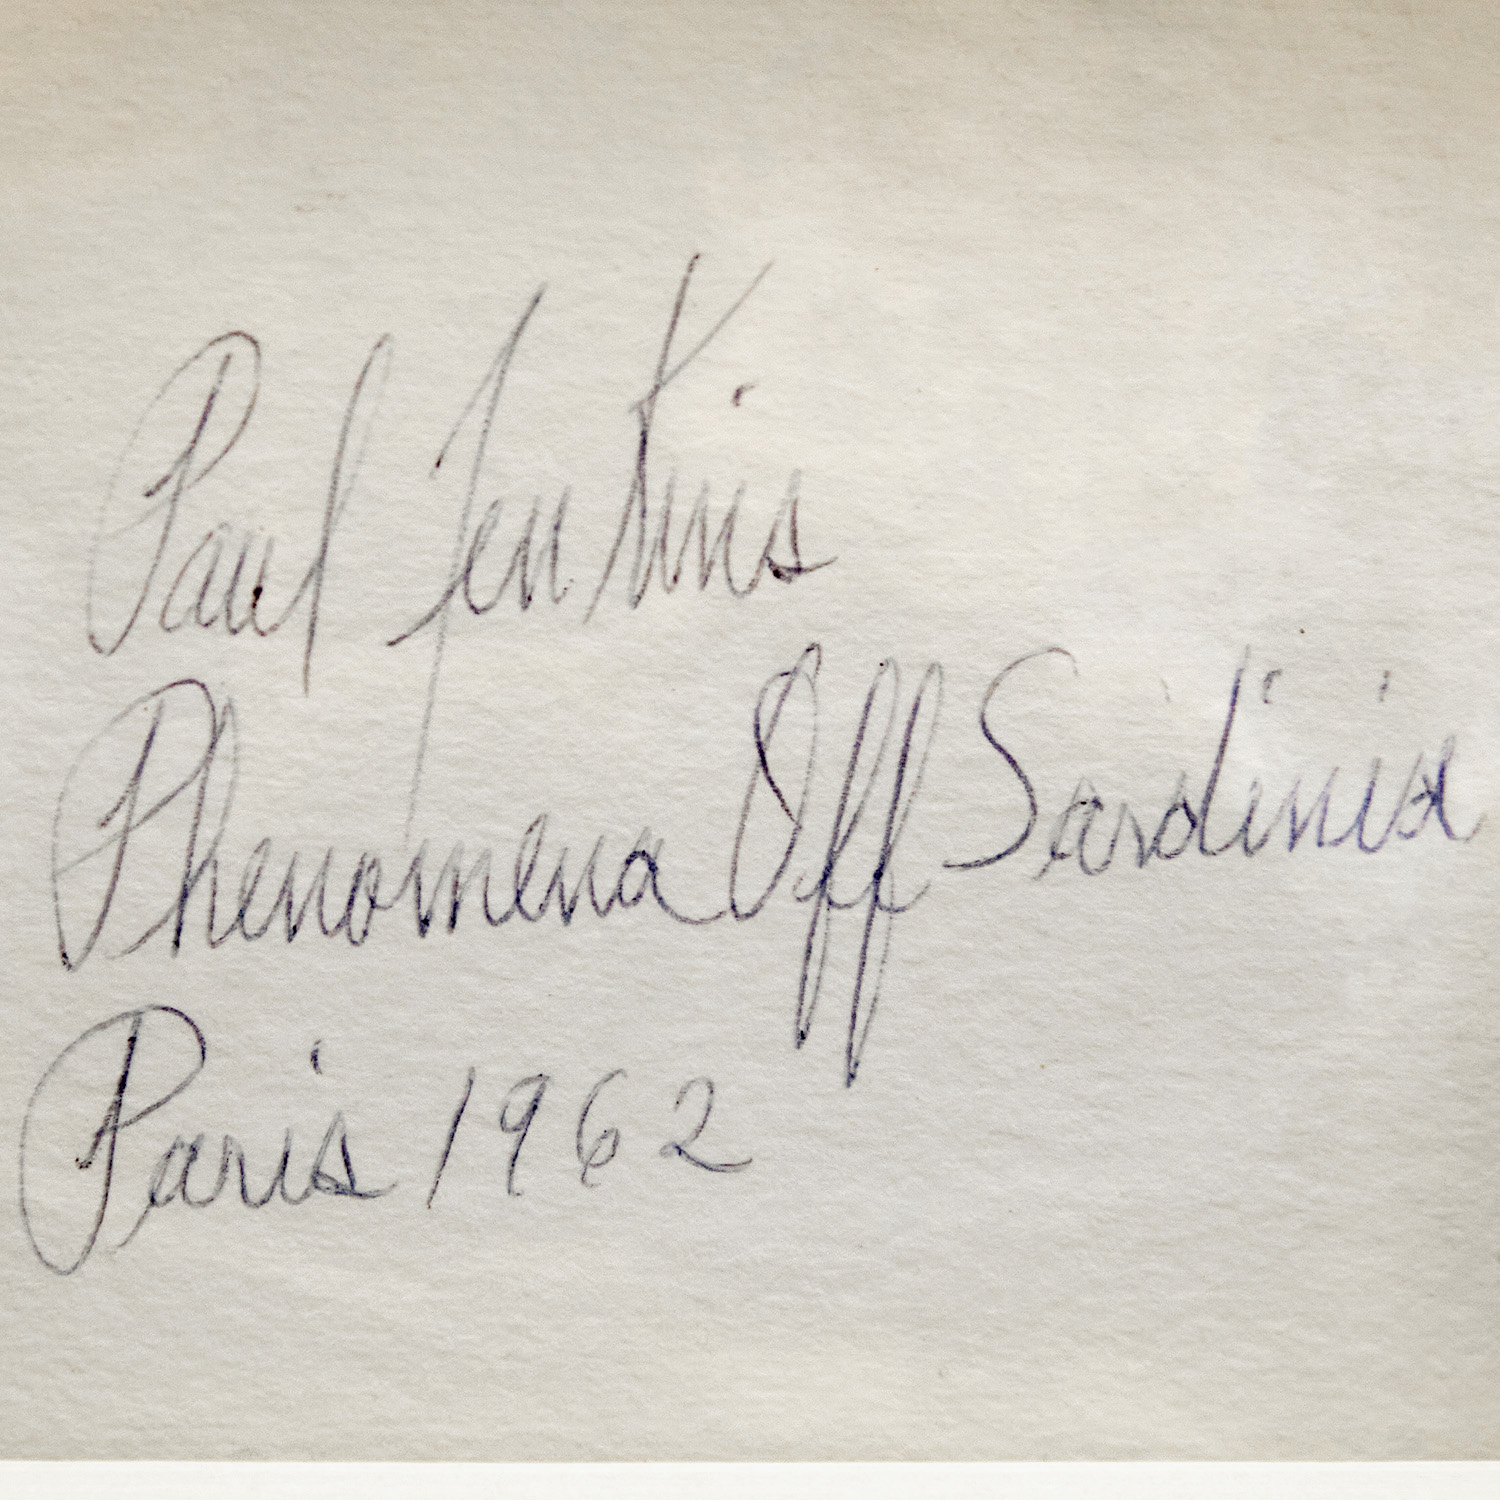 Paul Jenkins
Phenomena Off Sardinia
Paris 1962